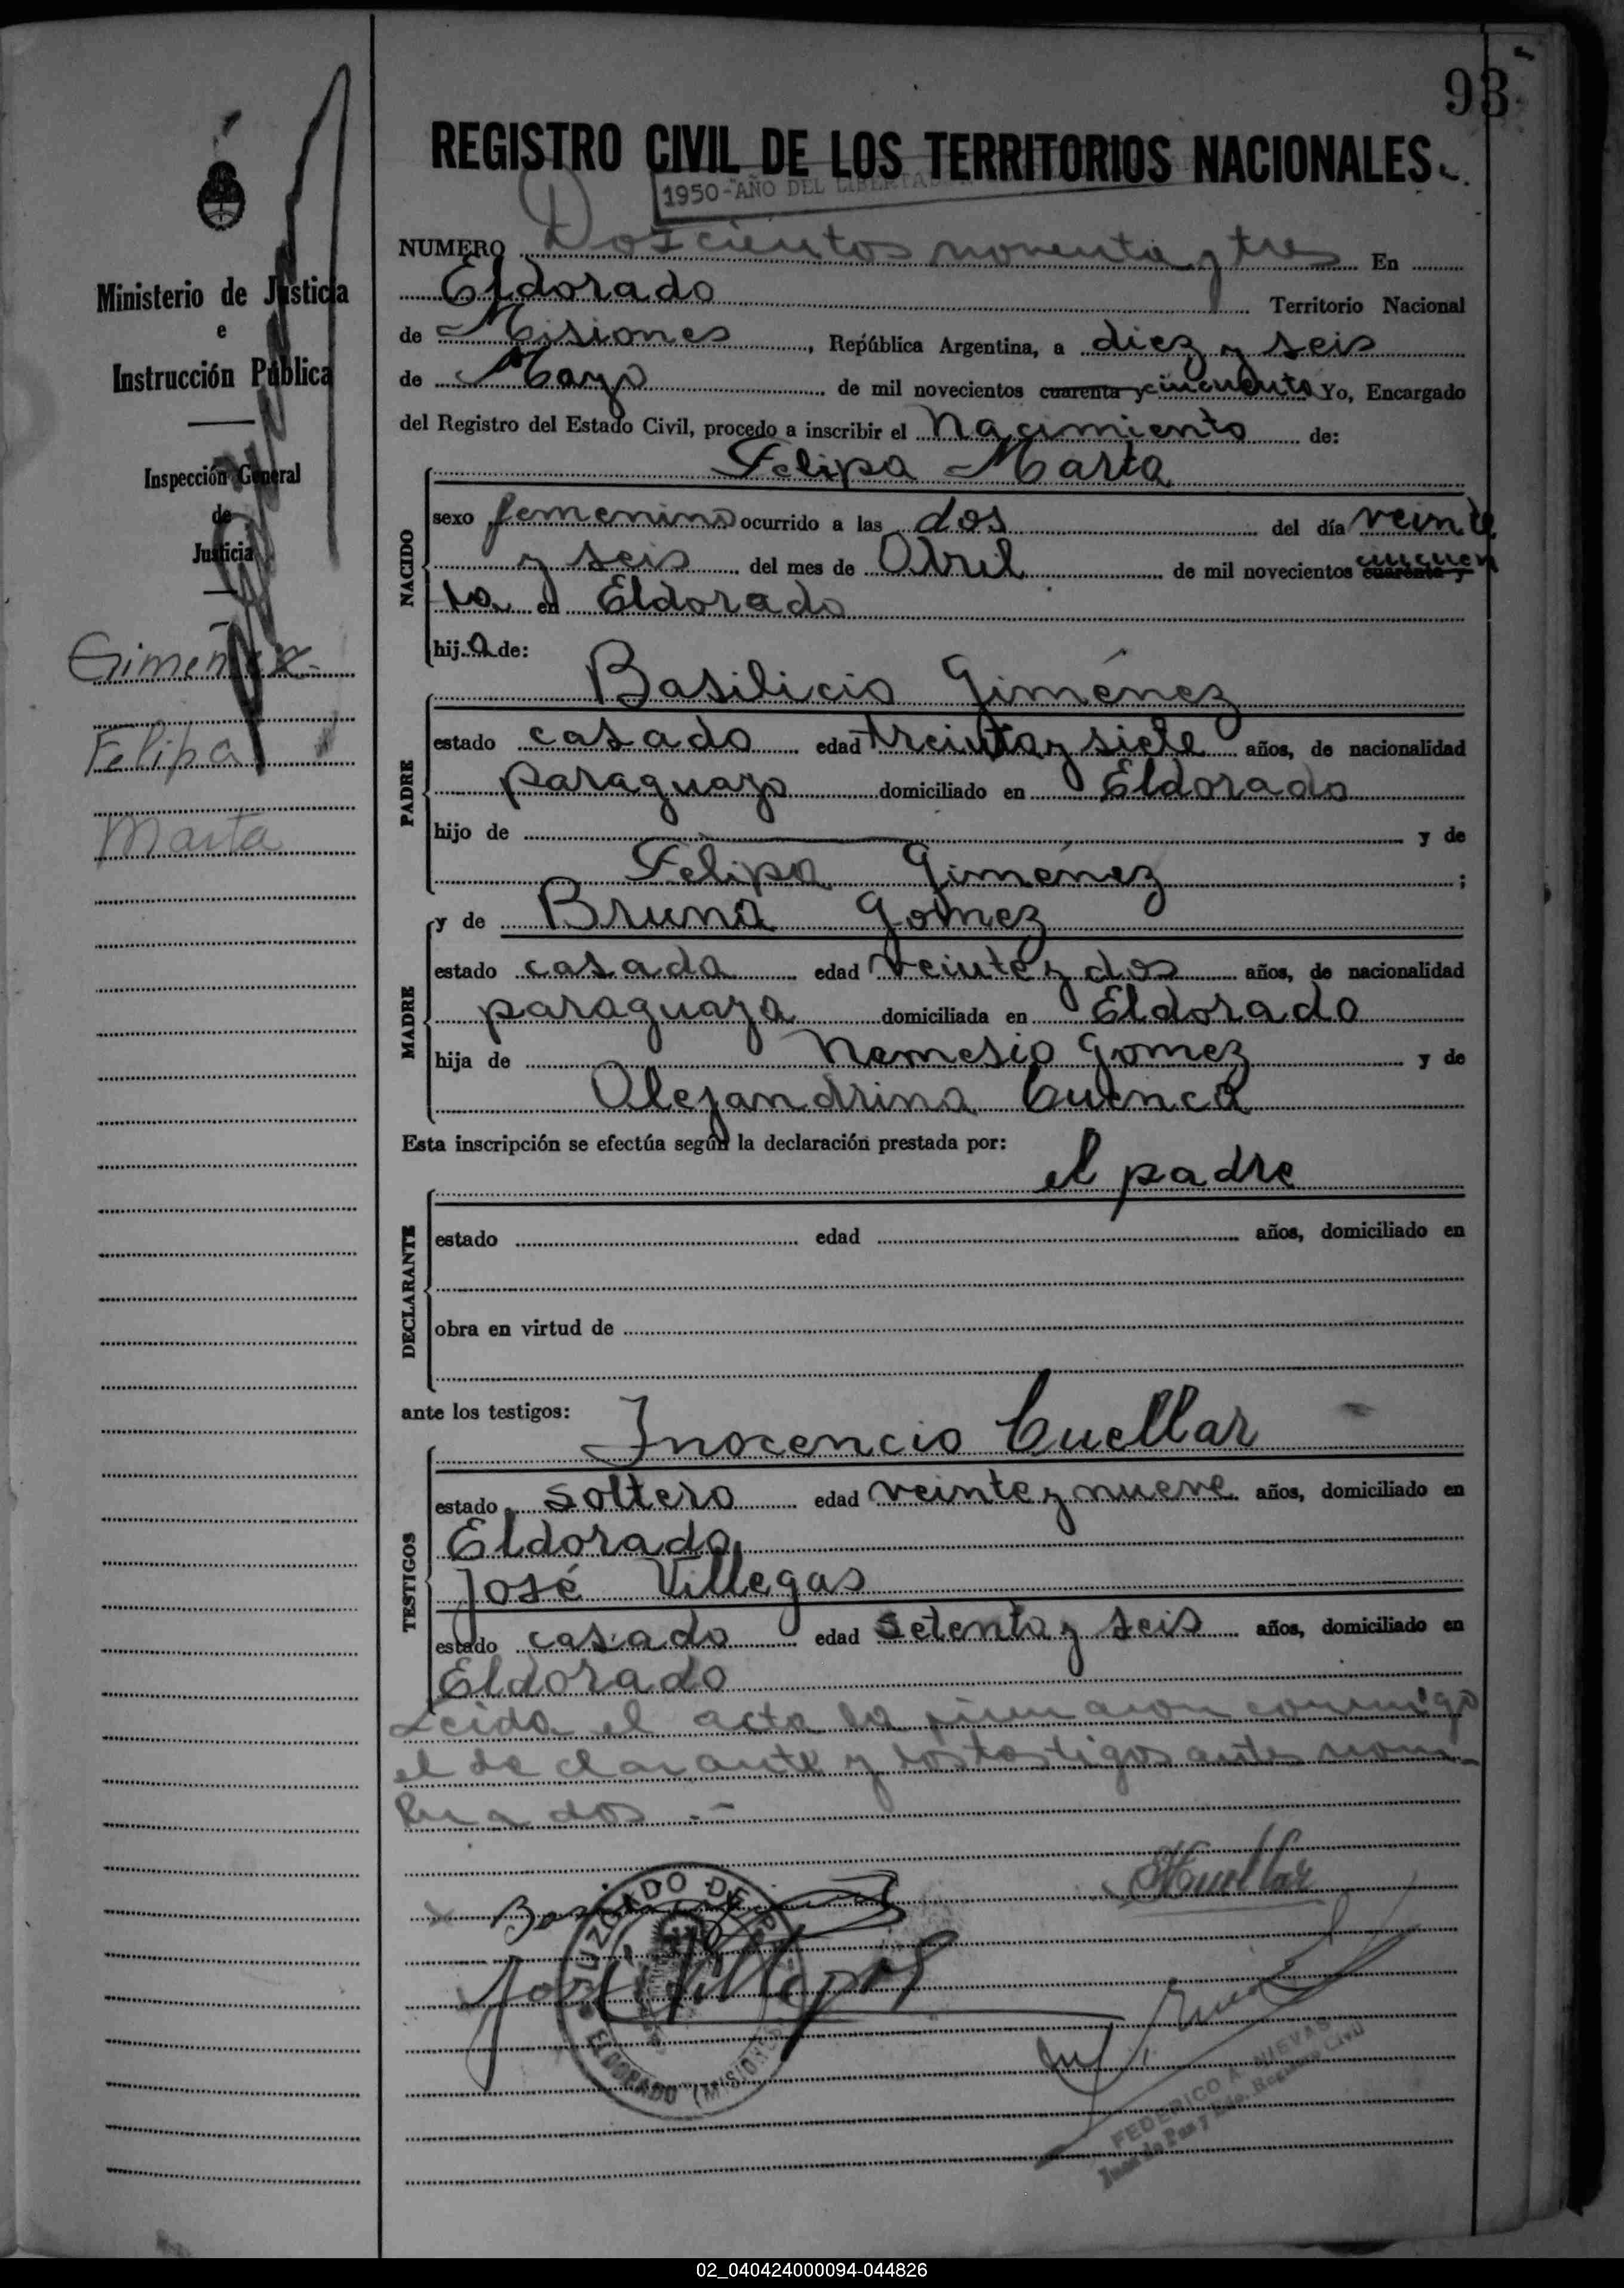 93
REGISTRO CIVIL DE LOS TERRITORIOS NACIONALES
1950-AÑO DEL LIBERTADOR
Ministerio de Justicia
e
Instrucción Pública
Inspección General
de
Justicia
Giménez
Felipa
Marta
NUMERO Doscientos noventa y tres En
Eldorado Territorio Nacional
de Misiones, República Argentina, a diez y seis
de Mayo de mil novecientos cuarenta y cincuenta Yo, Encargado
del Registro del Estado Civil, procedo a inscribir el Nacimiento de:
Felipa Marta
NACIDO
sexo femenino ocurrido a las dos del día veinte
y seis del mes de Abril de mil novecientos cuarenta y cincuen
ta en Eldorado
hija de:
Basilicio Giménez
PADRE
estado casado edad treinta y siete años, de nacionalidad
paraguayo domiciliado en Eldorado
hijo de y de
Felipa Gimenez ;
y de Bruna Gomez
MADRE
estado casada edad veinte y dos años, de nacionalidad
paraguaya domiciliada en Eldorado
hija de Nemesio Gomez y de
Alejandrina Cuenca
Esta inscripción se efectúa según la declaración prestada por:
el padre
DECLARANTE
estado edad años, domiciliado en
obra en virtud de
ante los testigos:
Inocencio Cuellar
TESTIGOS
estado soltero edad veinte y nueve años, domiciliado en
Eldorado
José Villegas
estado casado edad setenta y seis años, domiciliado en
Eldorado
Leida el acta la firmaron conmigo
el declarante y los testigos antes nom-
brados.-
JUZGADO DE P
ELDORADO (MISIONES)
José Villegas
FEDERICO A. NIEVAS
Juez de Paz y Edo. Registro Civil
02_040424000094-044826